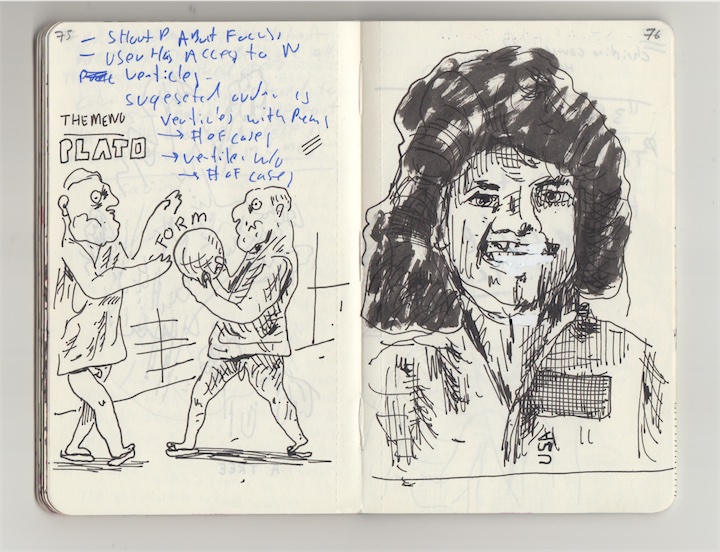 75
- SHOUT P ABOUT FOCUS
- USER HAS ACCESS TO N
verticles -
sugeseted order is
verticles with Pears
→ # OF cases
→ verticles w/o
→ # OF cases
THE MENO
PLATO
FORM
76
USA